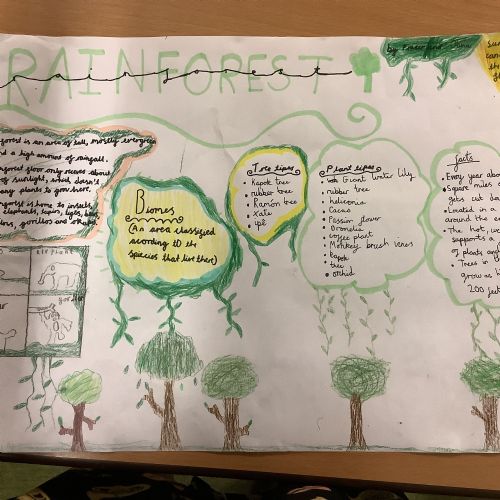 RAINFOREST
rainforest
by
forest is an area of tall, mostly evergreen
nd a high amount of rainfall.
forest floor only receives about
of sunlight, which doesn't
any plants to grow here.
forest is home to insects,
elephants, tapir, tigers, bears
gorillas and
elephant
gorilla
Biomes
(An area classified
according to the
species that live there)
Tree types
• Kapok tree
• rubber tree
• Ramón tree
• Xate
• ipê
Plant types
• Giant Water Lily
• rubber tree
• heliconia
• Cacao
• Passion flower
• Bromelia
• coffee plant
• Monkey brush vines
• Kapok
• tree
• orchid
facts
• Every year abou
• Square miles
gets cut
• Located in a
around the
• The hot, we
supports a
of plants an
• Trees in t
grow as
200 feet